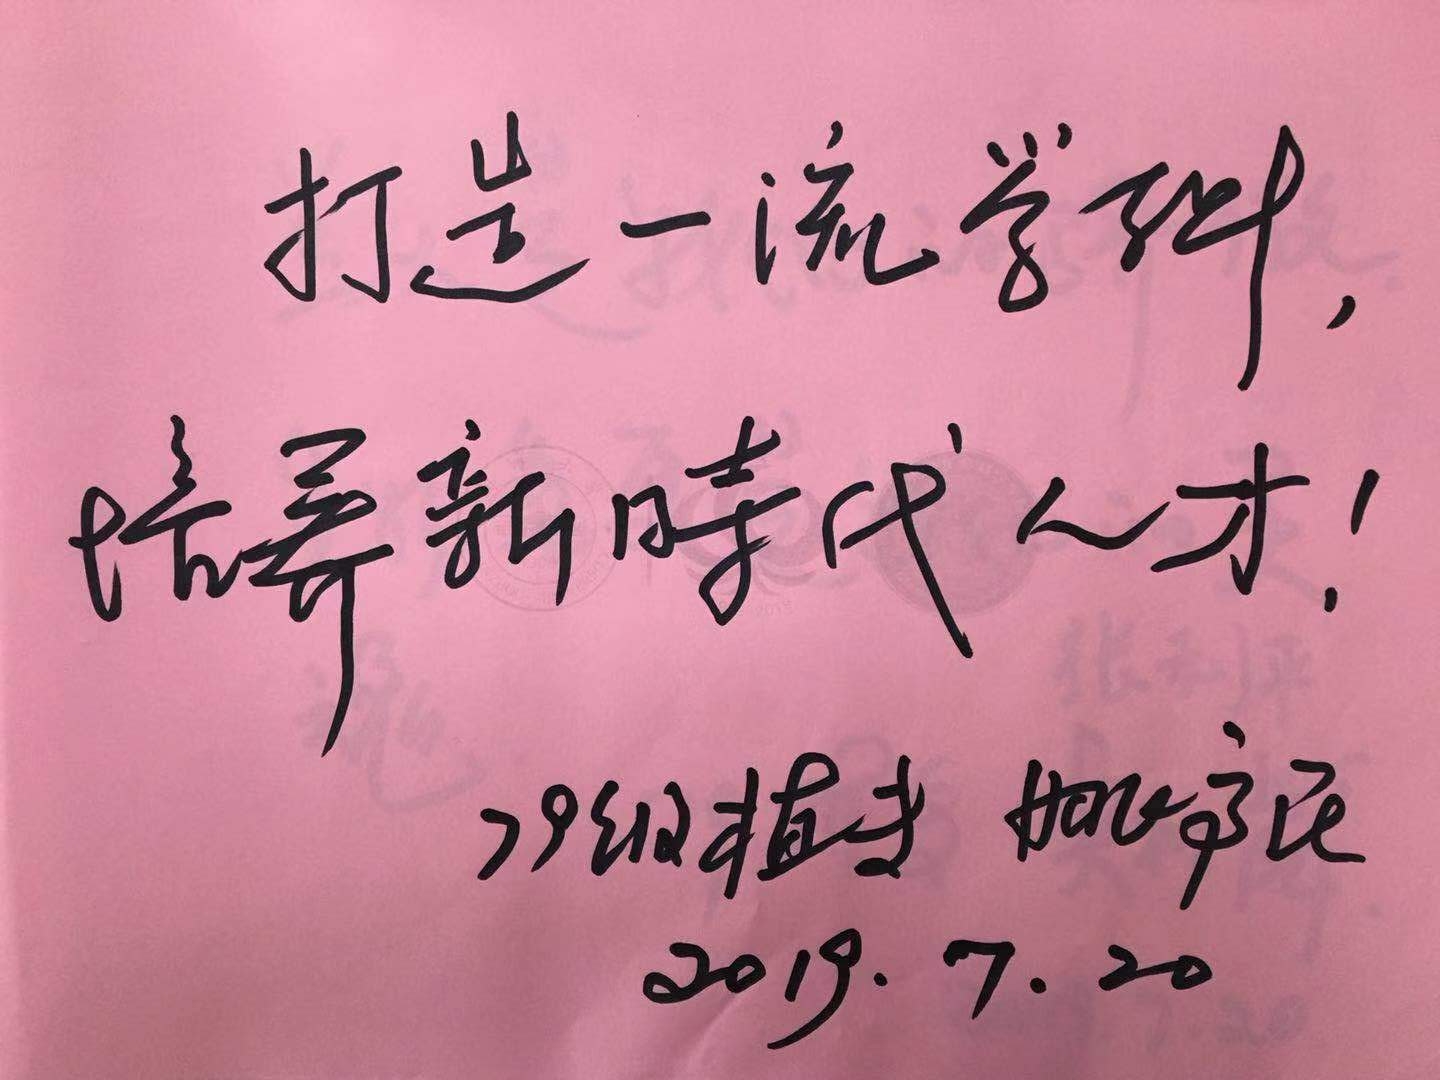 打造一流学科,
培养新時代人才!
79级植 民
2019.7.20
张利平